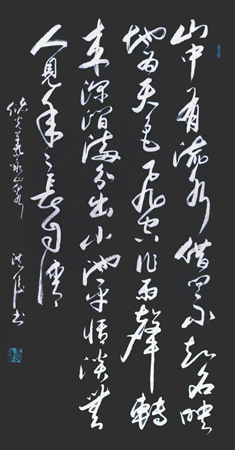 山中有流水借問不知名映
地為天色飛空作雨聲轉
來深澗滿分出小池平恬淡無
人見年々長自清
儲光羲詠山泉